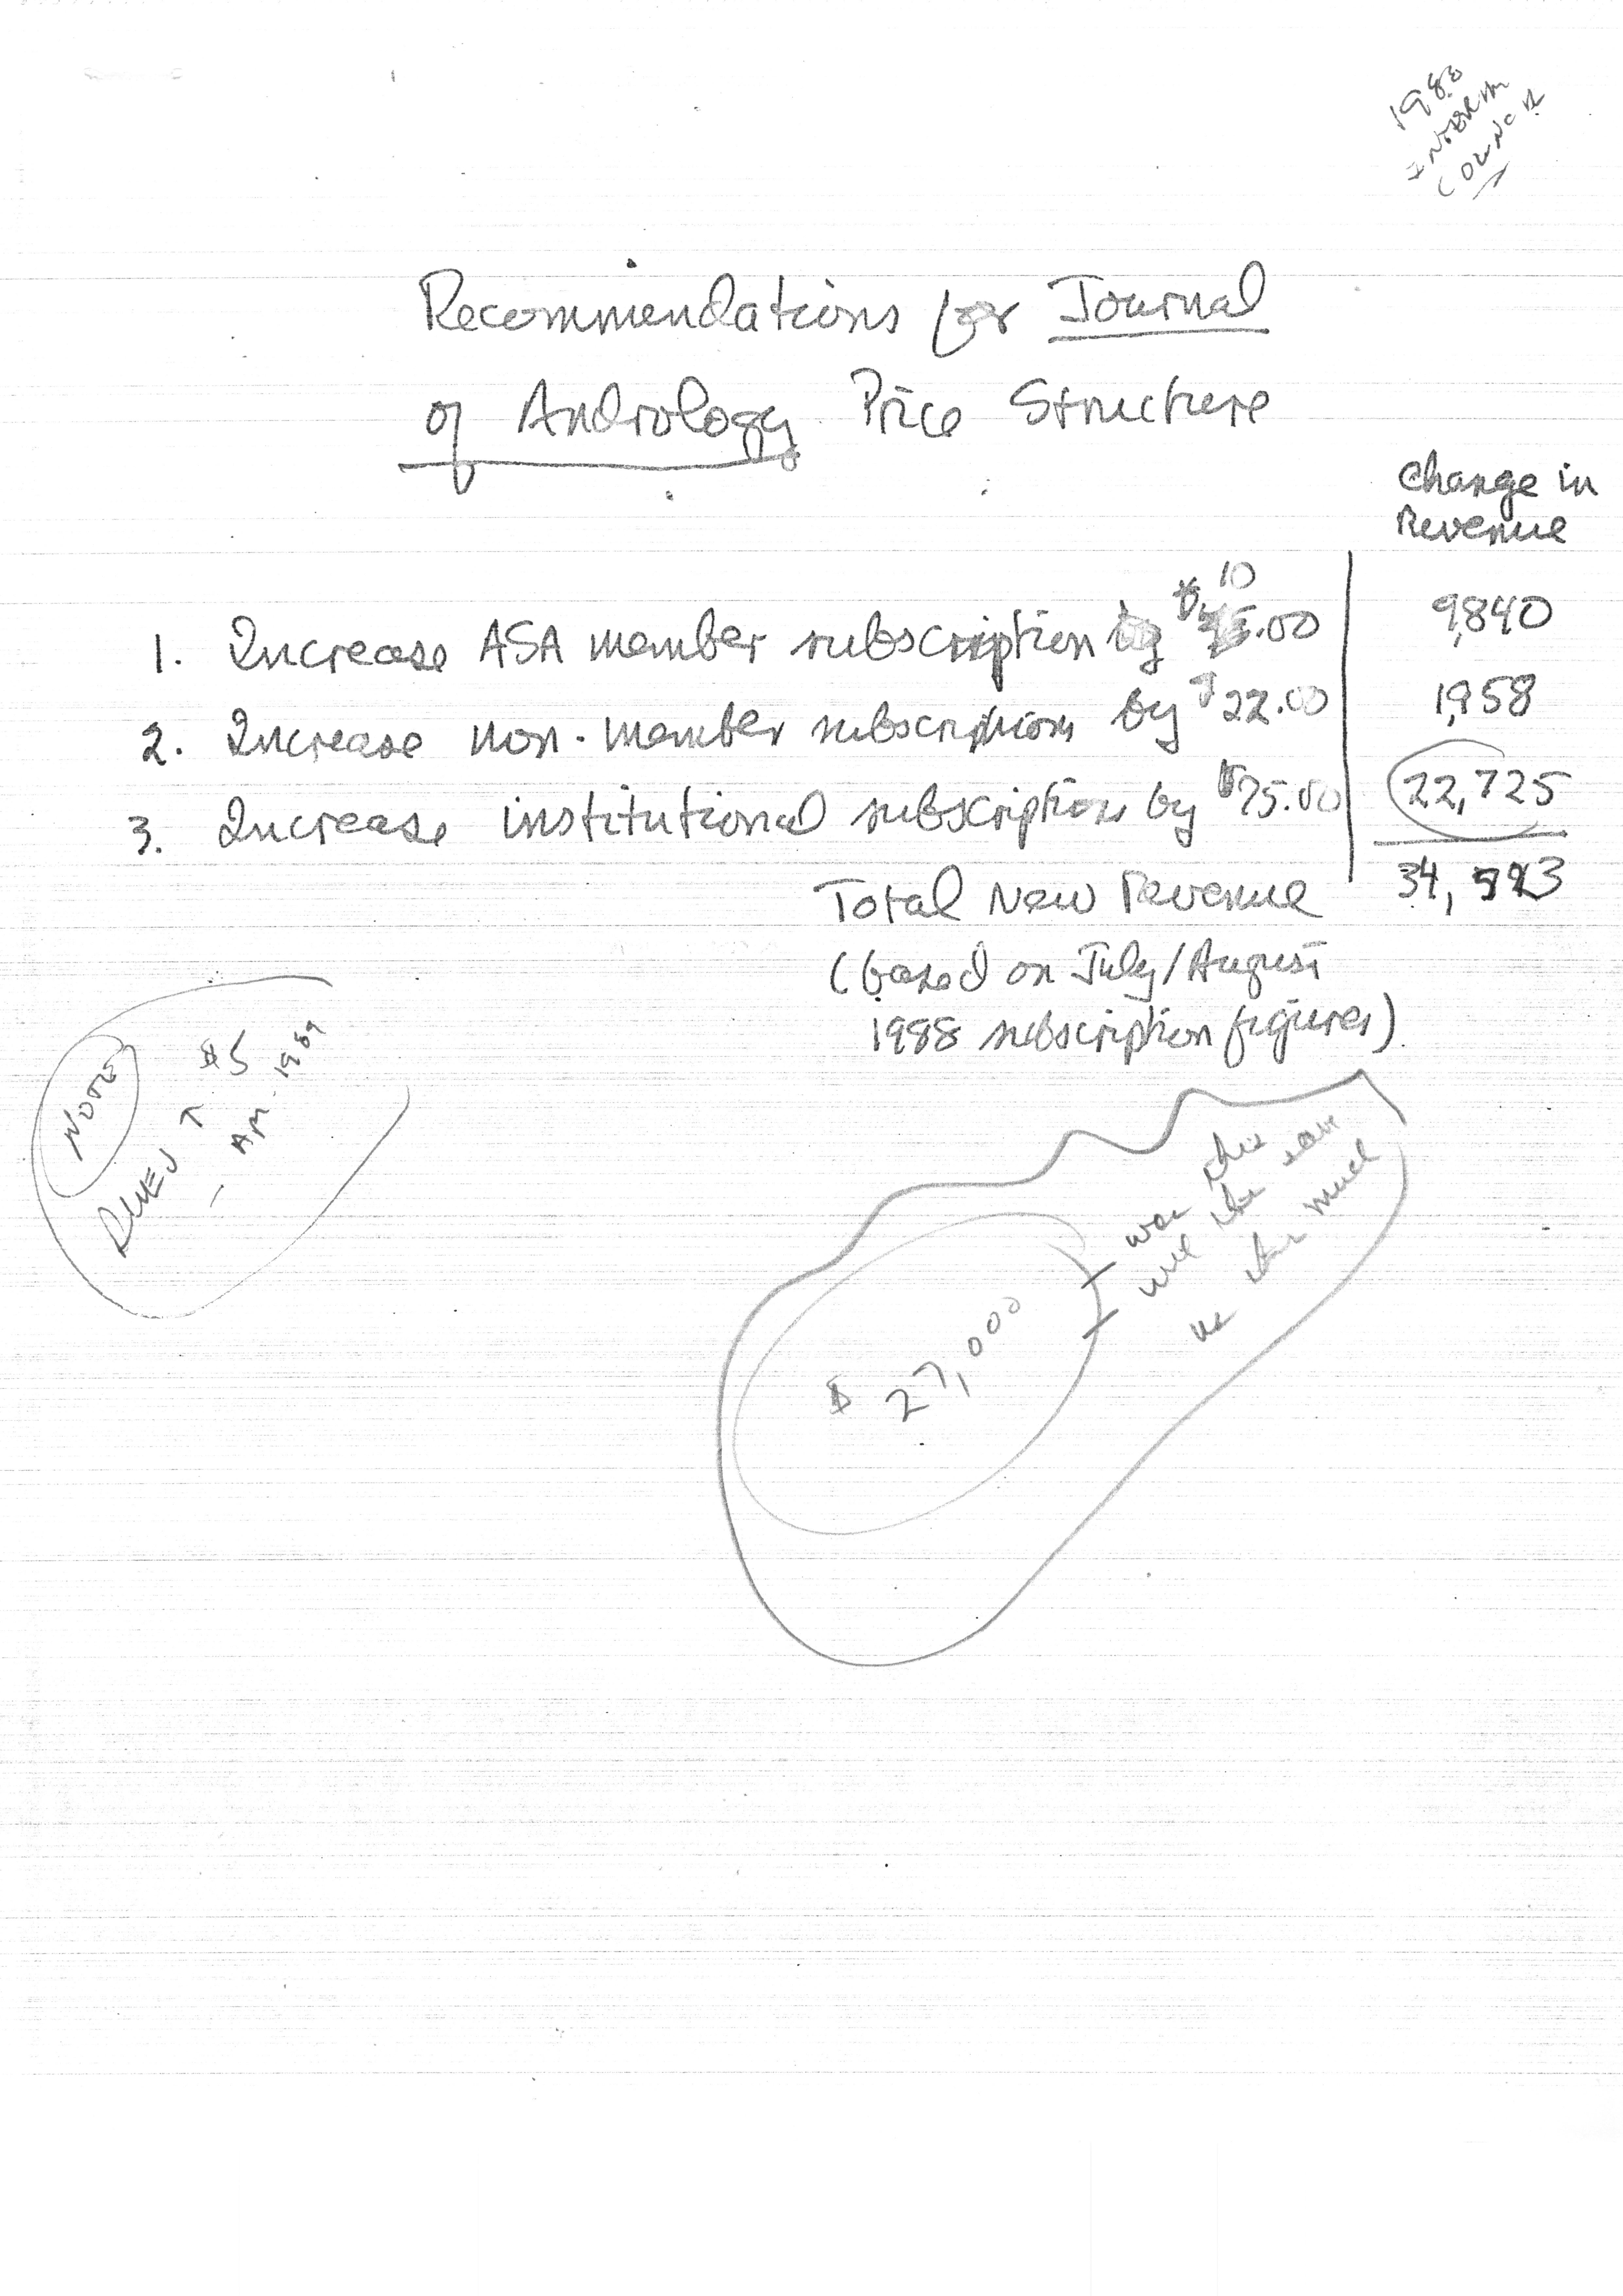 1988
INTERIM
COUNCIL
Recommendations for Journal
of Andrology Price Structure
Change in
Revenue
10
1. Increase ASA member subscription by $ .00 9,840
2. Increase non-member subscriptions by $22.00 1,958
3. Increase institutional subscriptions by $75.00 22,725
Total New Revenue 34,523
(based on July/August
1988 subscription figures)
NOTE
DUES ↑ $5
- AM - 1989
was this
us that much
$ 27,000